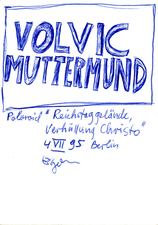 VOLVIC
MUTTERMUND
Polaroid "Reichstaggelände,
Verhüllung Christo"
4 VII 95 Berlin